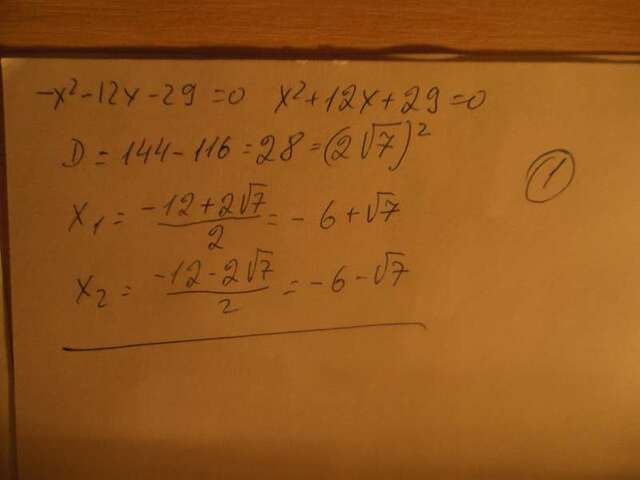 -x²-12x-29=0 x²+12x+29=0
D=144-116=28=(2√7)²
1
x₁ = (-12+2√7)/2 = -6+√7
x₂ = (-12-2√7)/2 = -6-√7